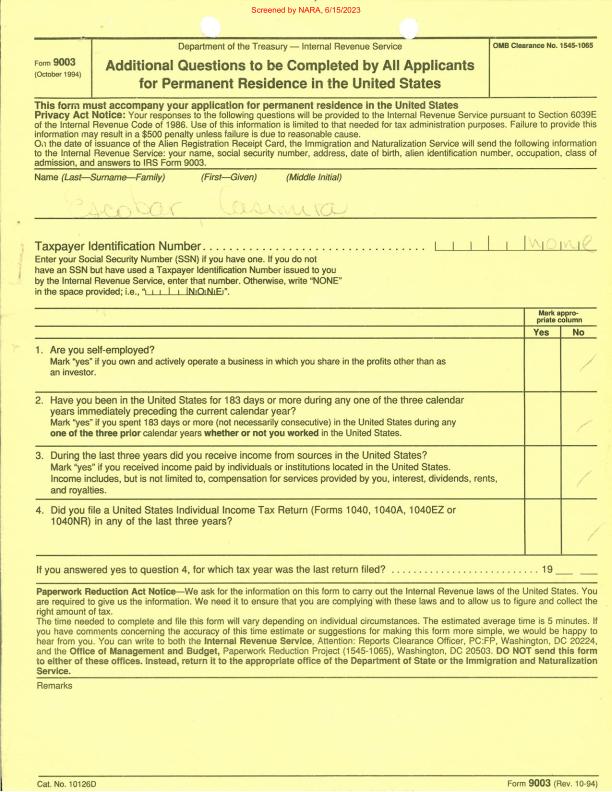 Screened by NARA, 6/15/2023
Form 9003
(October 1994)
Department of the Treasury — Internal Revenue Service
Additional Questions to be Completed by All Applicants
for Permanent Residence in the United States
OMB Clearance No. 1545-1065
This form must accompany your application for permanent residence in the United States
Privacy Act Notice: Your responses to the following questions will be provided to the Internal Revenue Service pursuant to Section 6039E
of the Internal Revenue Code of 1986. Use of this information is limited to that needed for tax administration purposes. Failure to provide this
information may result in a $500 penalty unless failure is due to reasonable cause.
On the date of issuance of the Alien Registration Receipt Card, the Immigration and Naturalization Service will send the following information
to the Internal Revenue Service: your name, social security number, address, date of birth, alien identification number, occupation, class of
admission, and answers to IRS Form 9003.
Name (Last—Surname—Family) (First—Given) (Middle Initial)
Escobar Casimira
Taxpayer Identification Number . . . . . . . . . . . . . . . . . . . . . . . . . . . . . . . none
Enter your Social Security Number (SSN) if you have one. If you do not
have an SSN but have used a Taxpayer Identification Number issued to you
by the Internal Revenue Service, enter that number. Otherwise, write "NONE"
in the space provided; i.e., "| | | | |N|O|N|E|".
Mark appro-
priate column
Yes No
1. Are you self-employed?
Mark "yes" if you own and actively operate a business in which you share in the profits other than as
an investor.
/
2. Have you been in the United States for 183 days or more during any one of the three calendar
years immediately preceding the current calendar year?
Mark "yes" if you spent 183 days or more (not necessarily consecutive) in the United States during any
one of the three prior calendar years whether or not you worked in the United States.
/
3. During the last three years did you receive income from sources in the United States?
Mark "yes" if you received income paid by individuals or institutions located in the United States.
Income includes, but is not limited to, compensation for services provided by you, interest, dividends, rents,
and royalties.
/
4. Did you file a United States Individual Income Tax Return (Forms 1040, 1040A, 1040EZ or
1040NR) in any of the last three years?
/
If you answered yes to question 4, for which tax year was the last return filed? . . . . . . . . . . . . . . . . . . . . . . . . 19 __ __
Paperwork Reduction Act Notice—We ask for the information on this form to carry out the Internal Revenue laws of the United States. You
are required to give us the information. We need it to ensure that you are complying with these laws and to allow us to figure and collect the
right amount of tax.
The time needed to complete and file this form will vary depending on individual circumstances. The estimated average time is 5 minutes. If
you have comments concerning the accuracy of this time estimate or suggestions for making this form more simple, we would be happy to
hear from you. You can write to both the Internal Revenue Service, Attention: Reports Clearance Officer, PC:FP, Washington, DC 20224,
and the Office of Management and Budget, Paperwork Reduction Project (1545-1065), Washington, DC 20503. DO NOT send this form
to either of these offices. Instead, return it to the appropriate office of the Department of State or the Immigration and Naturalization
Service.
Remarks
Cat. No. 10126D
Form 9003 (Rev. 10-94)